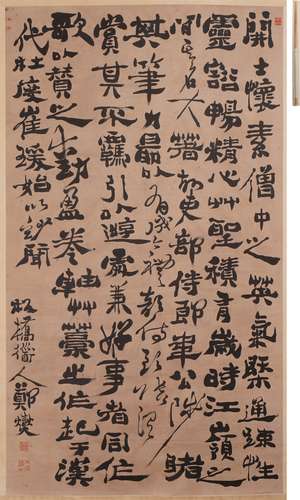 開士懷素僧中之英氣槩通疎性
靈豁暢精心艸聖積有歲時江嶺之
間其名大著故吏部侍郎韋公陟睹
其筆力勗以有成今禮部侍郎張謂
賞其不羈引以遊處兼好事者同作
歌以贊之動盈卷軸艸藁之作起于漢
代杜度崔瑗始以妙聞
板橋道人鄭燮